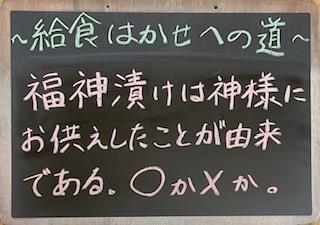 ~給食はかせへの道~
福神漬けは神様に
お供えしたことが由来
である。○か×か。